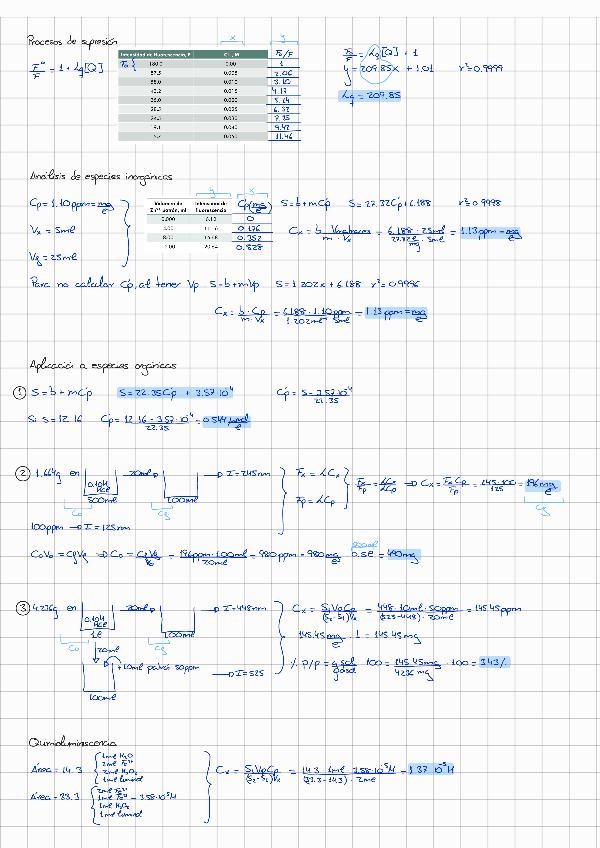 Procesos de supresión
F°/F = 1 + Kq[Q]
x y
Intensidad de fluorescencia, F | Cl-, M | F0/F
F0 { 180.0 | 0.00 | 1
87.5 | 0.005 | 2.06
0.010 | 3.10
43.2 | 0.015 | 4.17
0.020
28.3 | 0.025
0.030
19.1 | 0.040 | 9.42
0.050 | 11.46
F0/F = Kq[Q] + 1
y = 209.85x + 1.01 r² = 0.9999
Kq = 209.85
Análisis de especies inorgánicas
Cp = 1.10 ppm = mg/l
Vx = 5ml
Vg = 25ml
y x
Volumen de Zn2+ patrón, ml | Intensidad de fluorescencia | Cp(mg/l)
0.000 | 6.12 | 0
4.00 | 11.16 | 0.176
8.00 | 15.68 | 0.352
0.528
S = b + mCp S = 27.32Cp + 6.188 r² = 0.9998
Para no calcular Cp, al tener Vp S = b + mVp S = 1.202x + 6.188 r² = 0.9996
Cx = b·Cp/m·Vx = 6.188·1.10ppm/1.202ml·5ml = 1.13ppm = mg/l
Aplicació a especies orgánicas
① S = b + mCp S = 22.35Cp + 3.57·10⁻⁴ Cp = S - 3.57·10⁻⁴/22.35
Si S = 12.16 Cp = 12.16 - 3.57·10⁻⁴/22.35 = 0.544
② 1.664g en 0.10M HCl 500ml 20ml → 100ml → I = 245nm
C0 Cg
100ppm → I = 125nm
Fx = KCx
Fp = KCp
Fx/Fp = KCx/KCp ⇒ Cx = FxCp/Fp = 245·100/125 = 196 mg/l
Cg
C0V0 = CgVg ⇒ C0 = CgVg/V0 = 196ppm·100ml/20ml = 980ppm = 980mg/l 0.5l = 490mg
③ 4.236g en 0.10M HCl 1l 20ml → 100ml → I = 448nm
C0 Cg
20ml + 10ml patró 50ppm → I = 525
100ml
Cx = S1VpCp/(S2-S1)Vx = 448·10ml·50ppm/(523-448)·20ml = 145.45ppm
145.45mg/l · 1 = 145.45mg
% P/P = g sol/g dsol · 100 = 145.45mg/4236mg · 100 = 3.43%
Quimioluminiscencia
Àrea = 14.3 { 1ml H2O
2ml Fe²⁺
2ml H2O2
1ml luminol
Àrea = 33.3 { 2ml Fe²⁺
1ml Fe²⁺ - 3.58·10⁻⁵M
1ml H2O2
1ml luminol
Cx = S1VpCp/(S2-S1)Vx = 14.3·1ml·3.58·10⁻⁵M/(33.3-14.3)·2ml = 1.37·10⁻⁵M